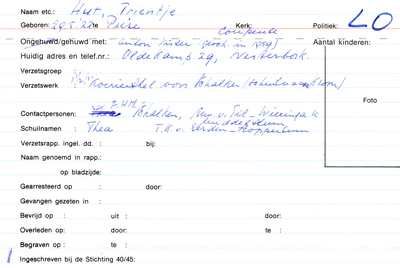 Naam etc.: Hut, Trientje
Geboren: 29.5.'22 te Peize Kerk: Politiek: LO
Ongehuwd/gehuwd met: Anton Aantal kinderen:
Huidig adres en telef.nr.: Oldekamp 29, Westerbork.
Verzetsgroep
Verzetswerk Koerierster voor Schalken
Foto
Contactpersonen: Schalken, Mevr. v. Til - Wieringa te
Middelstum
Schuilnamen : Thea T.K. v.
Verzetsrapp. ingel. dd. : bij:
Naam genoemd in rapp.:
op bladzijde:
Gearresteerd op : door:
Gevangen gezeten in :
Bevrijd op : uit : door:
Overleden op : door: te :
Begraven op : te :
Ingeschreven bij de Stichting 40/45: